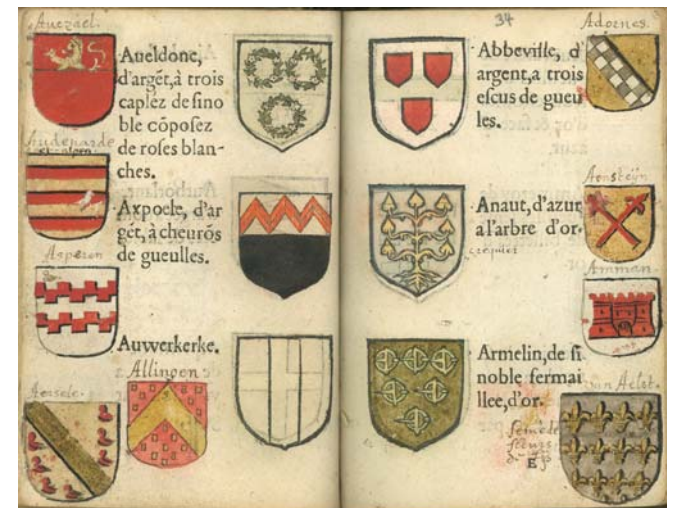 Auezael.
Aueldone,
d'argēt,à trois
caplez de sino
ble cōposez
de roses blan-
ches.
Axpoele, d'ar
gēt, à cheurōs
de gueulles.
Asperen
Auwerkerke.
Allingen
Aerssele.
34
Adornes.
Abbeville, d'
argent,a trois
escus de gueu
les.
Aensteÿn
Anaut,d'azur
a l'arbre d'or.
crequier
Amman.
Armelin,de si
noble fermai
llee,d'or.
van Aelst.
semé de
fleurs
E